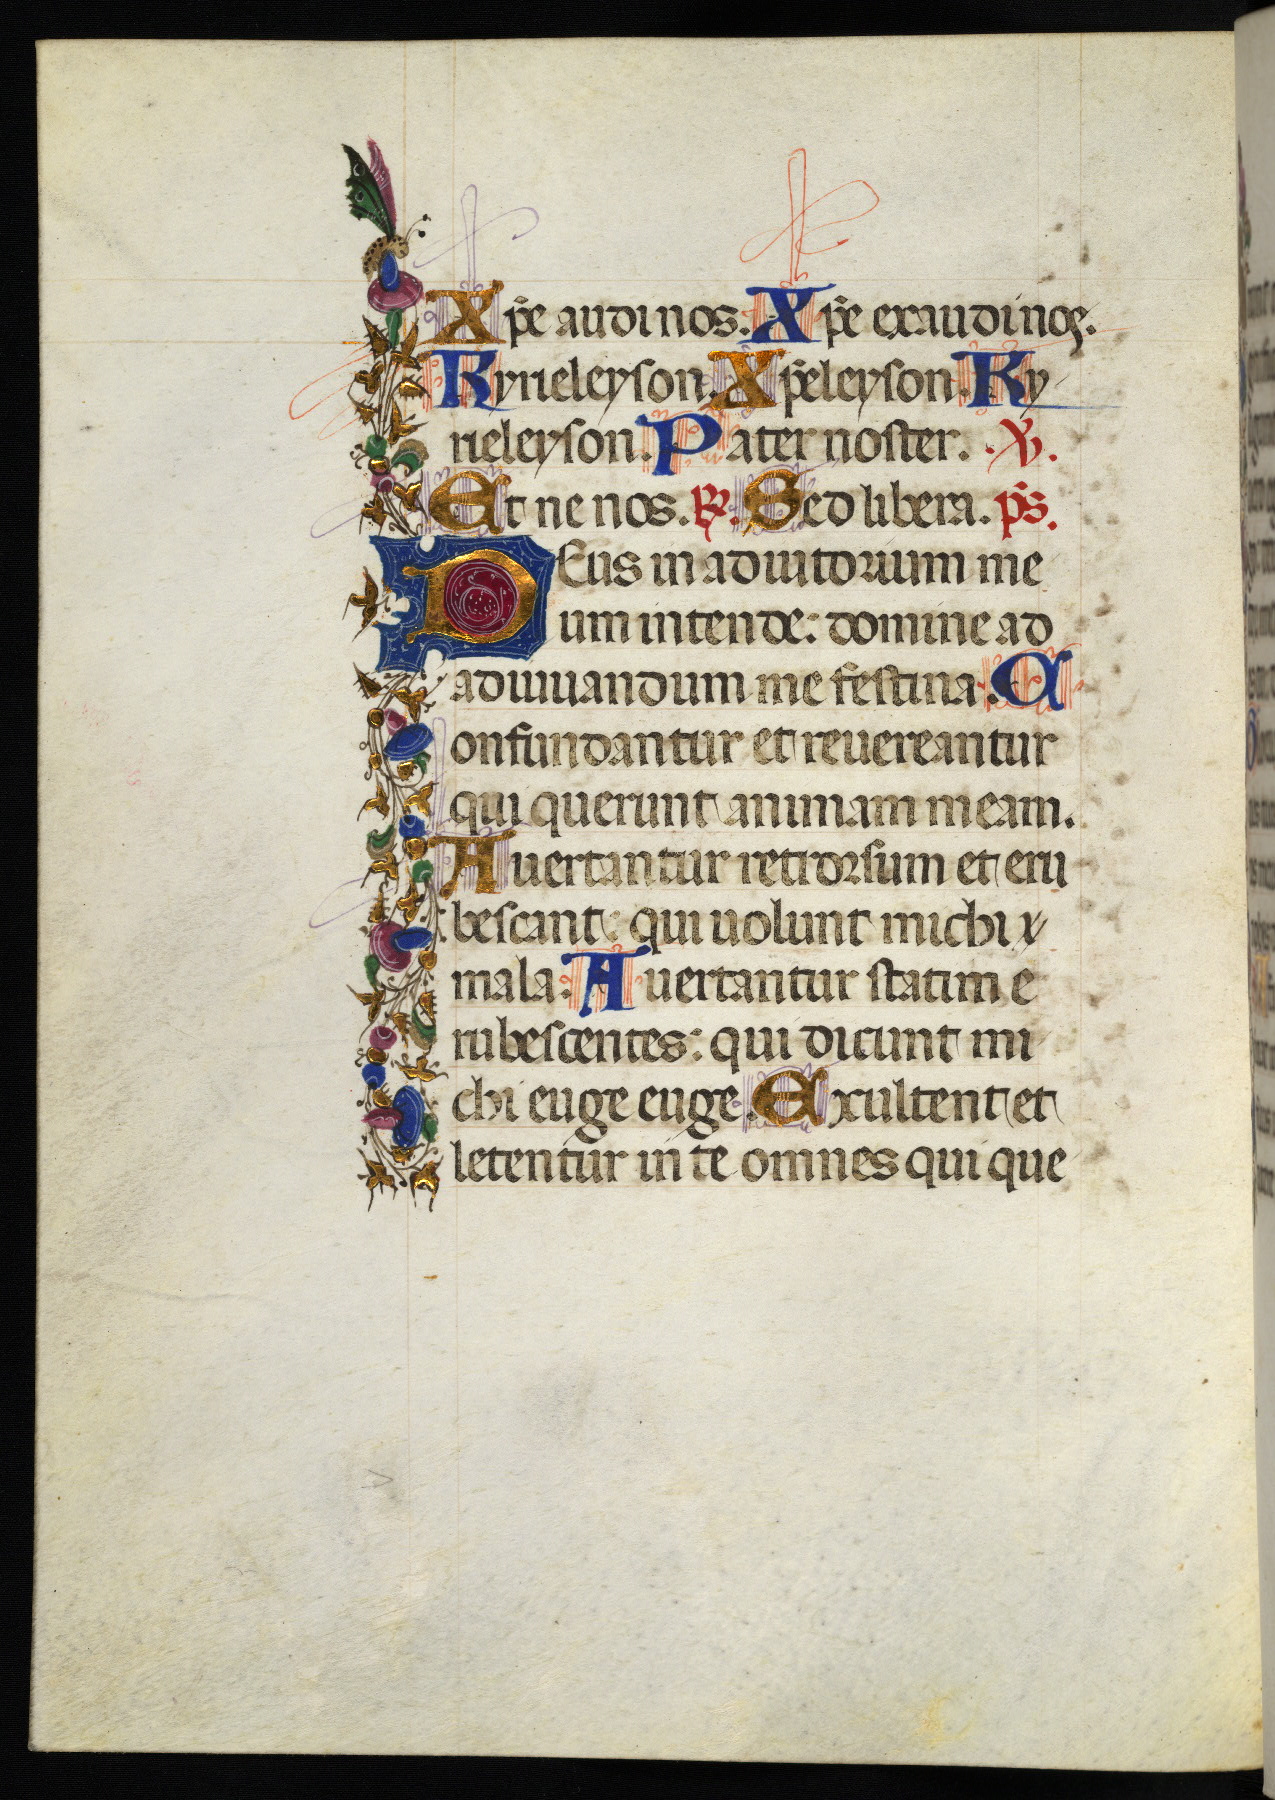 Xp̄e audi nos. Xp̄e exaudi nos.
Kyrieleyson. Xp̄eleyson. Ky
rieleyson. Pater noster. ℣.
Et ne nos. ℟. Sed libera. p̄s.
Deus in adiutorium me
um intende: domine ad
adiuuandum me festina. C
onfundantur et reuereantur
qui querunt animam meam.
Auertantur retrorsum et eru
bescant: qui uolunt michi
mala. Auertantur statim e
rubescentes: qui dicunt mi
chi euge euge. Exultent et
letentur in te omnes qui que